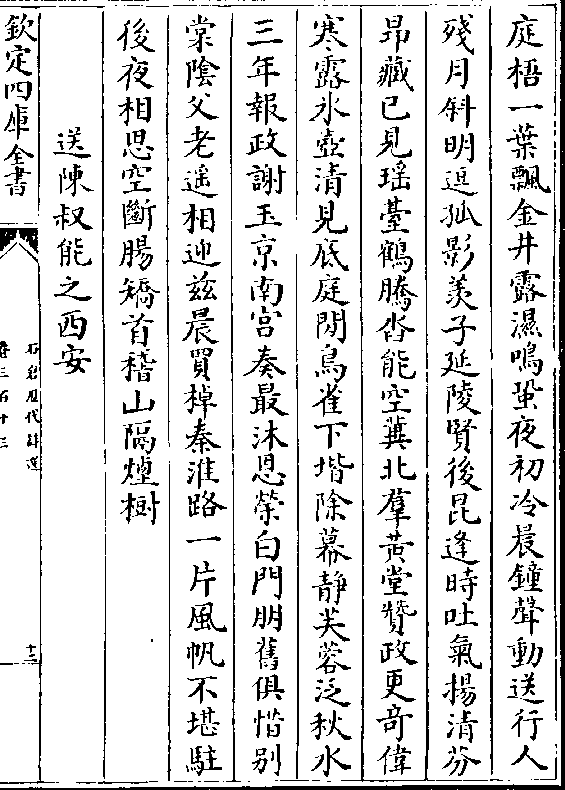 庭梧一葉飄金井露濕鳴蛩夜初冷晨鐘聲動送行人
殘月斜明逗孤影羨子延陵賢後昆逢時吐氣揚清芬
昂藏已見瑶臺鶴騰沓能空冀北羣黃堂贊政更竒偉
寒露氷壺清見底庭閒鳥雀下堦除幕靜芙蓉泛秋水
三年報政謝玉京南宫奏最沐恩榮白門朋舊俱惜别
棠陰父老遥相迎兹晨買棹秦淮路一片風帆不堪駐
後夜相思空斷腸矯首稽山隔煙樹
送陳叔能之西安
欽定四庫全書
石倉歷代詩選